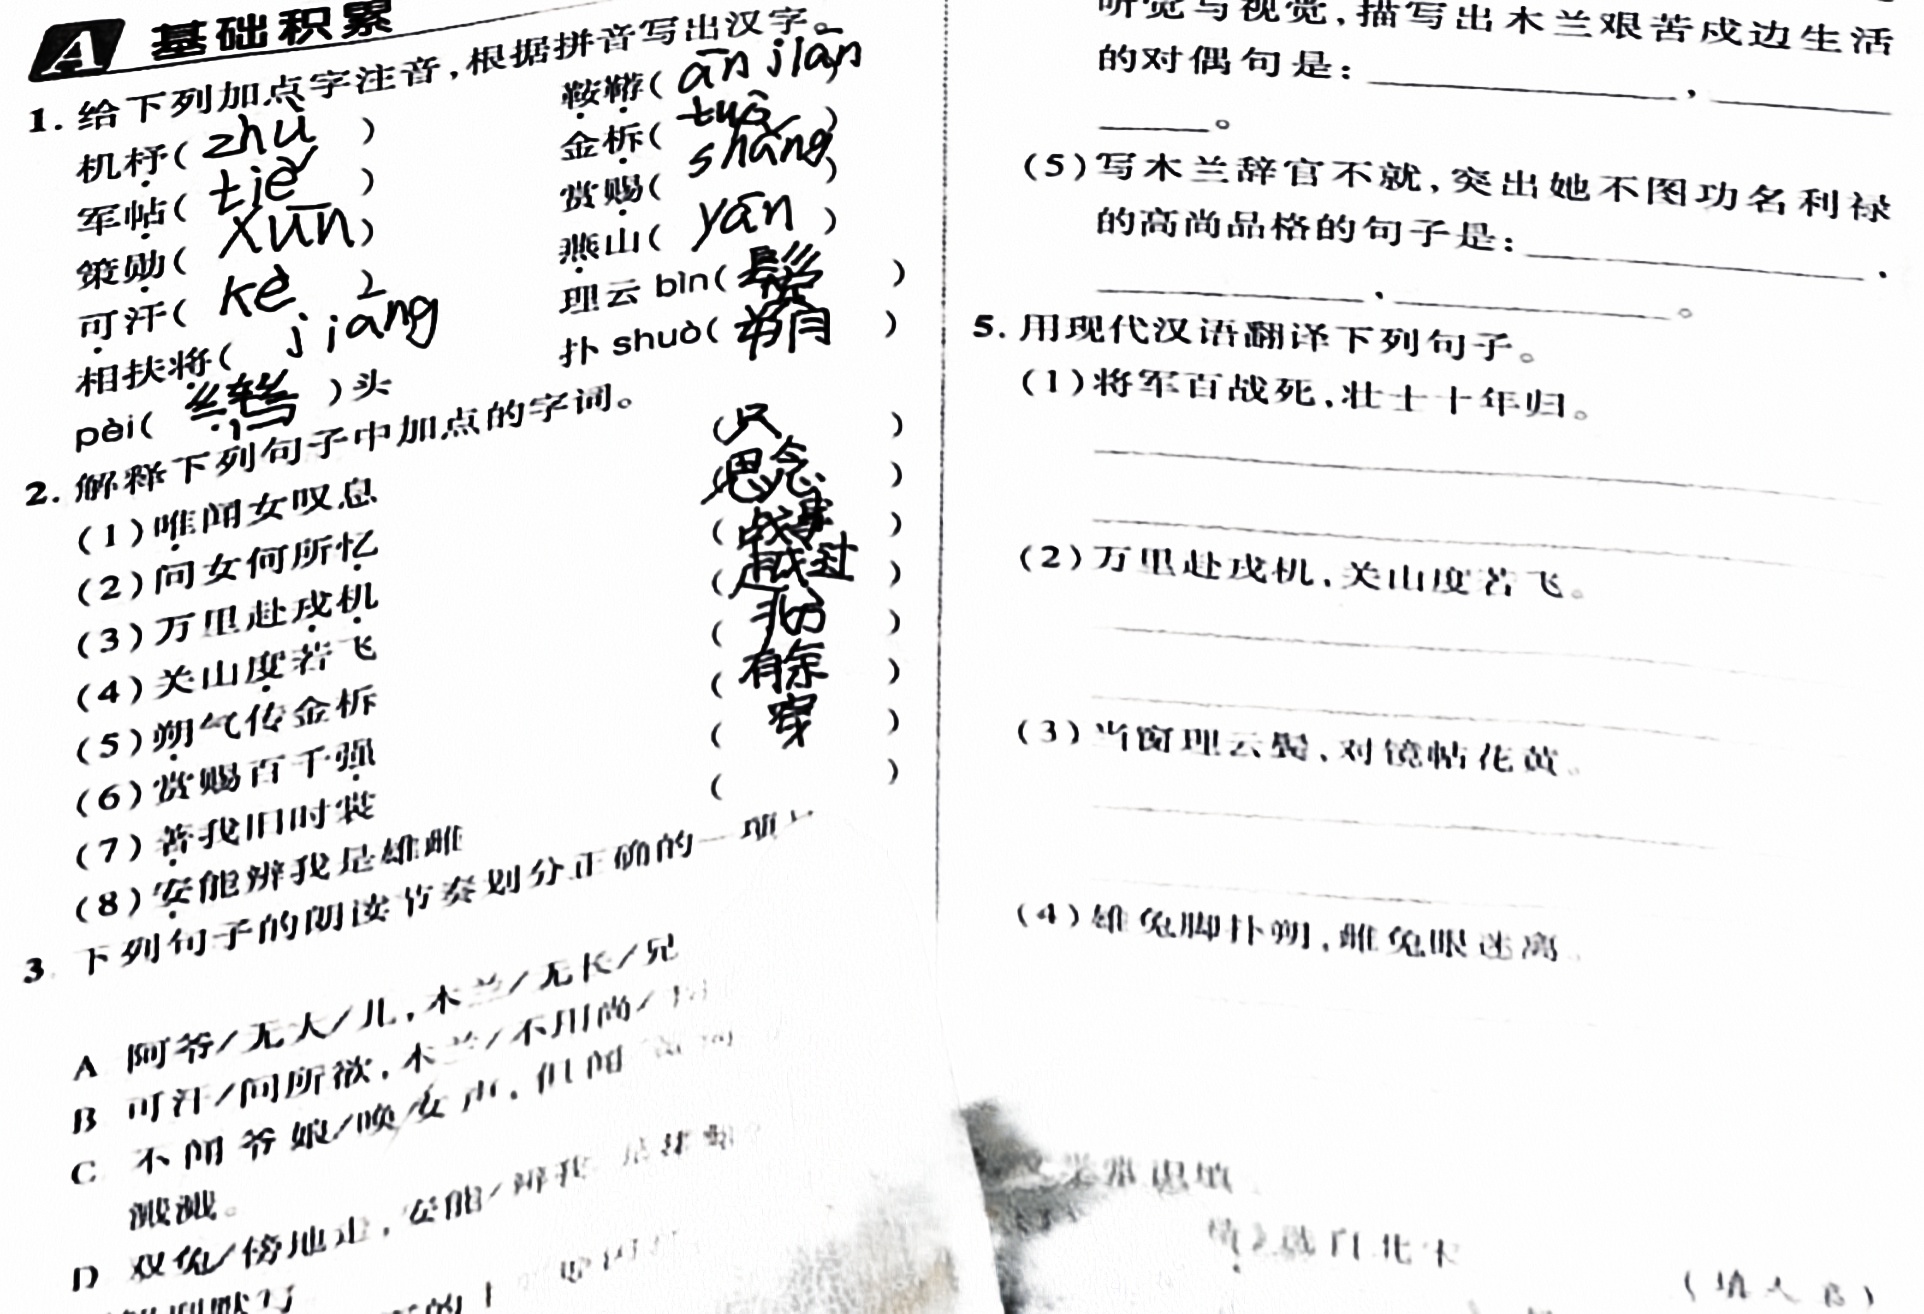 A 基础积累
1. 给下列加点字注音,根据拼音写出汉字。
机杼( zhù ) 鞍鞯( ān jiān )
军帖( tiě ) 金柝( tuò )
策勋( xūn ) 赏赐( shǎng )
可汗( kè ) 燕山( yān )
相扶将( jiāng 理云 bìn( 鬓 )
pèi( 辔 )头 扑 shuò( 朔 )
2. 解释下列句子中加点的字词。
(1)唯闻女叹息 (只 )
(2)问女何所忆 (思念 )
(3)万里赴戎机 (战事 )
(4)关山度若飞 (越过 )
(5)朔气传金柝 ( )
(6)赏赐百千强 ( 有余 )
(7)著我旧时裳 ( 穿 )
(8)安能辨我是雄雌 ( )
3 下列句子的朗读节奏划分正确的一项
A 阿爷/无大/儿,木兰/无长/兄
B 可汗/问所欲,木兰/不用尚/
C 不闻爷娘/唤/女声,但闻
溅溅。
D 双兔/傍地走,安能/辨我
听觉与视觉,描写出木兰艰苦戍边生活
的对偶句是:,
。
(5)写木兰辞官不就,突出她不图功名利禄
的高尚品格的句子是:,
,。
5. 用现代汉语翻译下列句子。
(1)将军百战死,壮士十年归。
(2)万里赴戎机,关山度若飞。
(3)当窗理云鬓,对镜帖花黄。
(4)雄兔脚扑朔,雌兔眼迷离
常识填